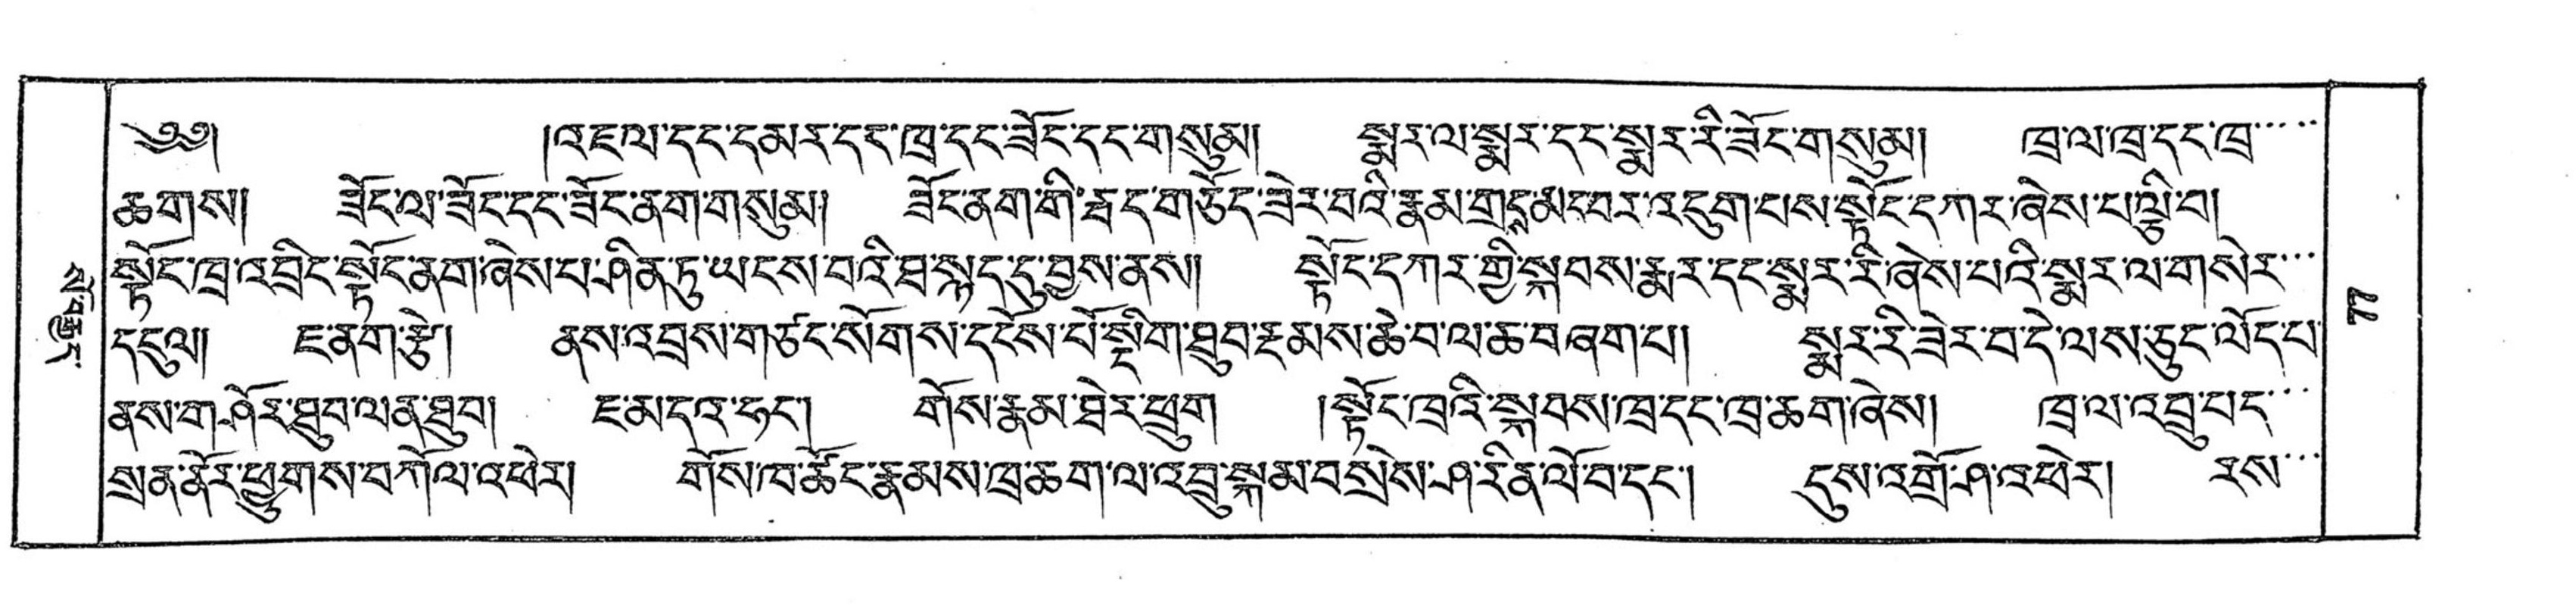 ༄༅། །འཇལ་དང་དམར་དང་ཁྲ་དང་ཟོང་དང་གསུམ། སྨར་ལ་སྨར་དང་སྨར་རི་ཟོང་གསུམ། ཁྲ་ལ་ཁྲ་དང་ཁྲ་
ཆགས། ཟོང་ལ་ཟོང་དང་ཟོང་ནག་གསུམ། ཟོང་ནག་གི་རྦད་གཅོད་ཟེར་བའི་རྣམ་གྲངས་མང་བར་འདུག་པས་སྟོང་དཀར་ཞེས་པ་ལྟ་བ།
སྟོང་ཁྲ་འབྲིང་སྟོང་ནག་ཞེས་པ་ཤིན་ཏུ་ཡངས་བའི་ཐ་སྙད་དུ་བྱས་ནས། སྟོང་དཀར་གྱི་སྐབས་སྨར་དང་སྨར་རི་ཞེས་པའི་སྨར་ལ་གསེར་
དངུལ། ཇ་ནག་རྩེ། ནས་འབྲས་གཙང་སོགས་དངོས་པོ་སྡིག་ཐུབ་རྣམས་ཆེ་བ་ལ་ཆ་བཞག་པ། སྨར་རི་ཟེར་བ་དེ་ལས་ཅུང་ལོད་པ་
ནས་ག་ཤོར་ཐུབ་ལན་ཐུབ། ཇ་མདའ་ཧང་། གོས་རྣམ་ཐེར་ཕྲུག །སྟོང་ཁྲའི་སྐབས་ཁྲ་དང་ཁྲ་ཆག་ཞེས། ཁྲ་ལ་འབྲུ་པད་
སྲན་ནོར་ཕྱུགས་བཀོལ་འཕེར། གོས་ཁ་ཚོང་རྣམས་ཁྲ་ཆག་ལ་འབྲུ་སྐམ་བསྲེས་ཤ་རིན་ལོབ་དང་། དུས་འགྲོ་ཤ་འཕེར། རས་